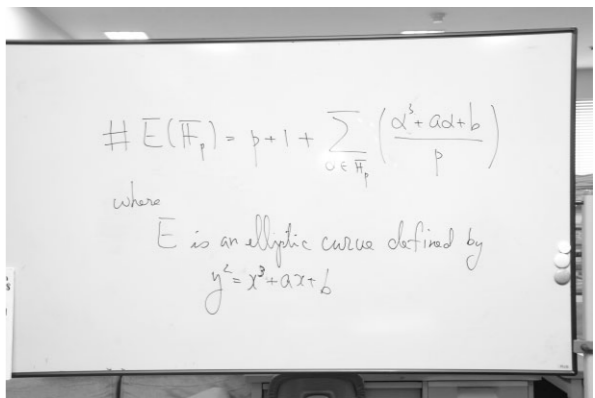 # E(𝔽_p) = p+1+ ∑_{α ∈ 𝔽_p} ( (α³+aα+b) / p )
where
E is an elliptic curve defined by
y² = x³+ax+b